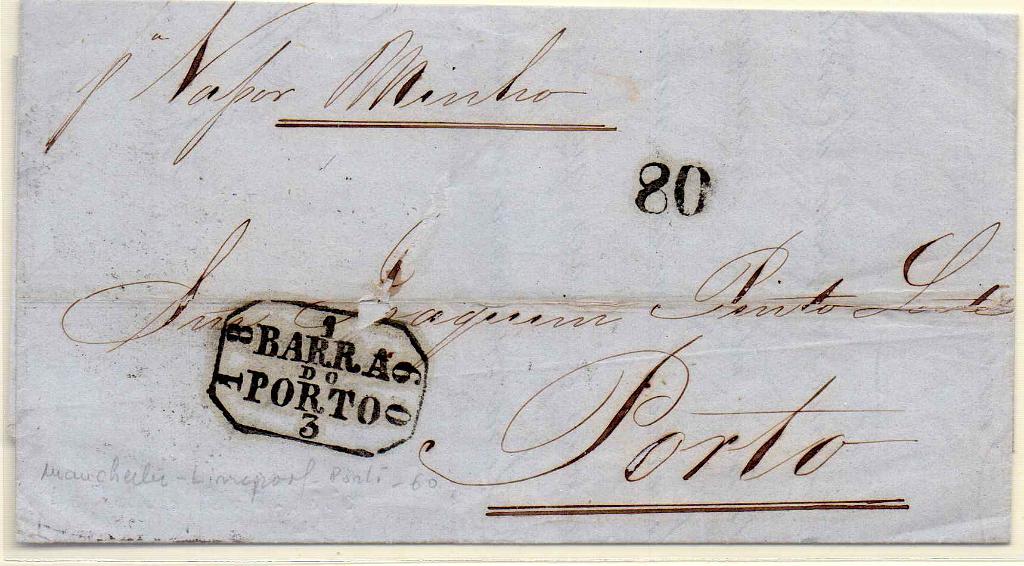 pª Vapor Minho
80
Snr Joaquim Pinto Leite
1
18 BARRA 60
DO
PORTO
3
Porto
Manchester - Liverpool - Porto - 60